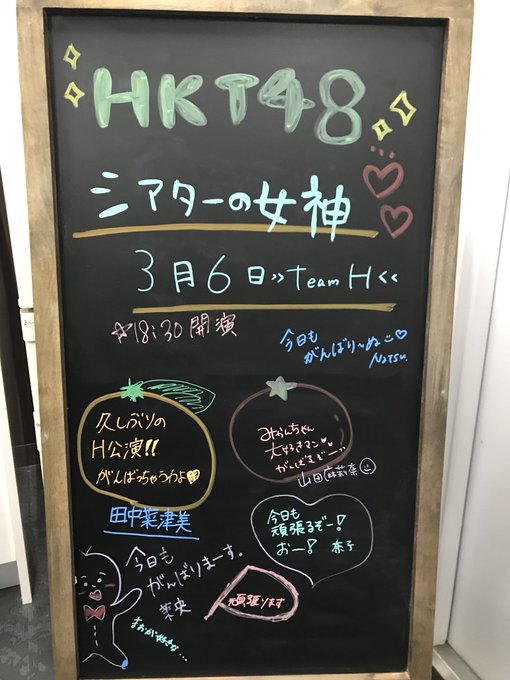 HKT48
シアターの女神
3月6日 >> Team H <<
☆18:30 開演
今日も
がんばり〜ぬ
Natsu.
久しぶりの
H公演!!
がんばっちゃうわよ
田中菜津美
みかんちゃん
大好きマン
がんばるぞー
山田麻莉奈
今日も
頑張るぞー!
おー! 奈子
今日も
がんばりまーす.
頑張ります